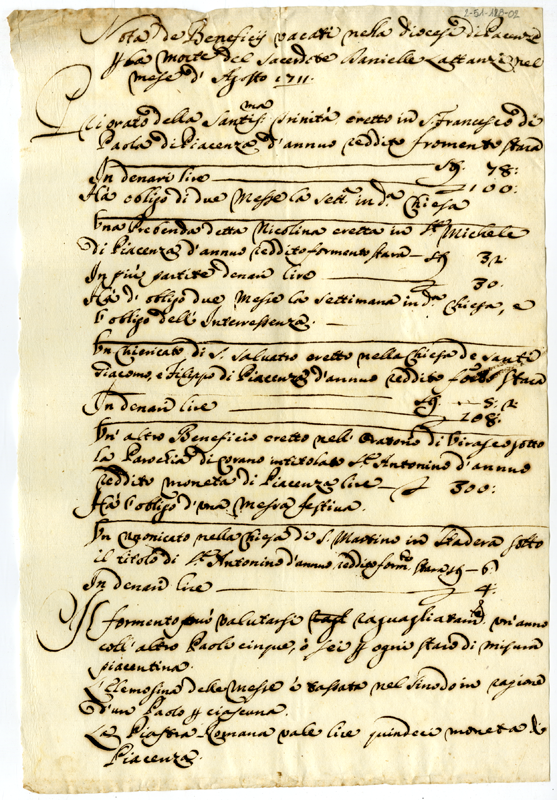 2-51-128-02
Nota de Beneficij vacati nella diocesi di Piacenza
p la morte del Sacerdote Danielle Lattanzi nel
mese d' Agosto 1711.
Priorato della Santis.ma Trinità eretto in S. Francesco di
Paola di Piacenza d'annuo reddito fromento stara
78:
In denari lire 100:
Há obligo di due Messe la sett.a in d.a Chiesa
Una Prebenda detta Nicolina eretta in S. Michele
di Piacenza d'annuo reddito formento stara 32
In più partite denari lire 30.
Há d' obligo due Messe la settimana in d.a Chiesa, e
l'obligo dell' Interressenza.
Un Chiericato di S. Salvatro eretto nella Chiesa de Santi
Giacomo, e Filippo di Piacenza d'annuo reddito stara
5. 2
In denari lire 108:
Un' altro Beneficio eretto nell' Oratorio di sotto
la Parochia di Corano intitolato S. Antonino d'annuo
reddito moneta di Piacenza lire 300:
Há l'obligo d'una messa festiva.
Un Canonicato nella Chiesa di S. Martino in Stadera sotto
il titolo di S. Antonino d'annuo reddito form.to stara 6
In denari lire 4.
Il formento può valutarsi raguagliatam.te un'anno
coll' altro Paoli cinque, ò sei p ogni staro di misura
piacentina.
L'Elemosina delle Messe è tassata nel Sinodo in ragione
d'un Paolo p ciascuna.
La Piastra Romana vale lire quindeci moneta di
Piacenza.